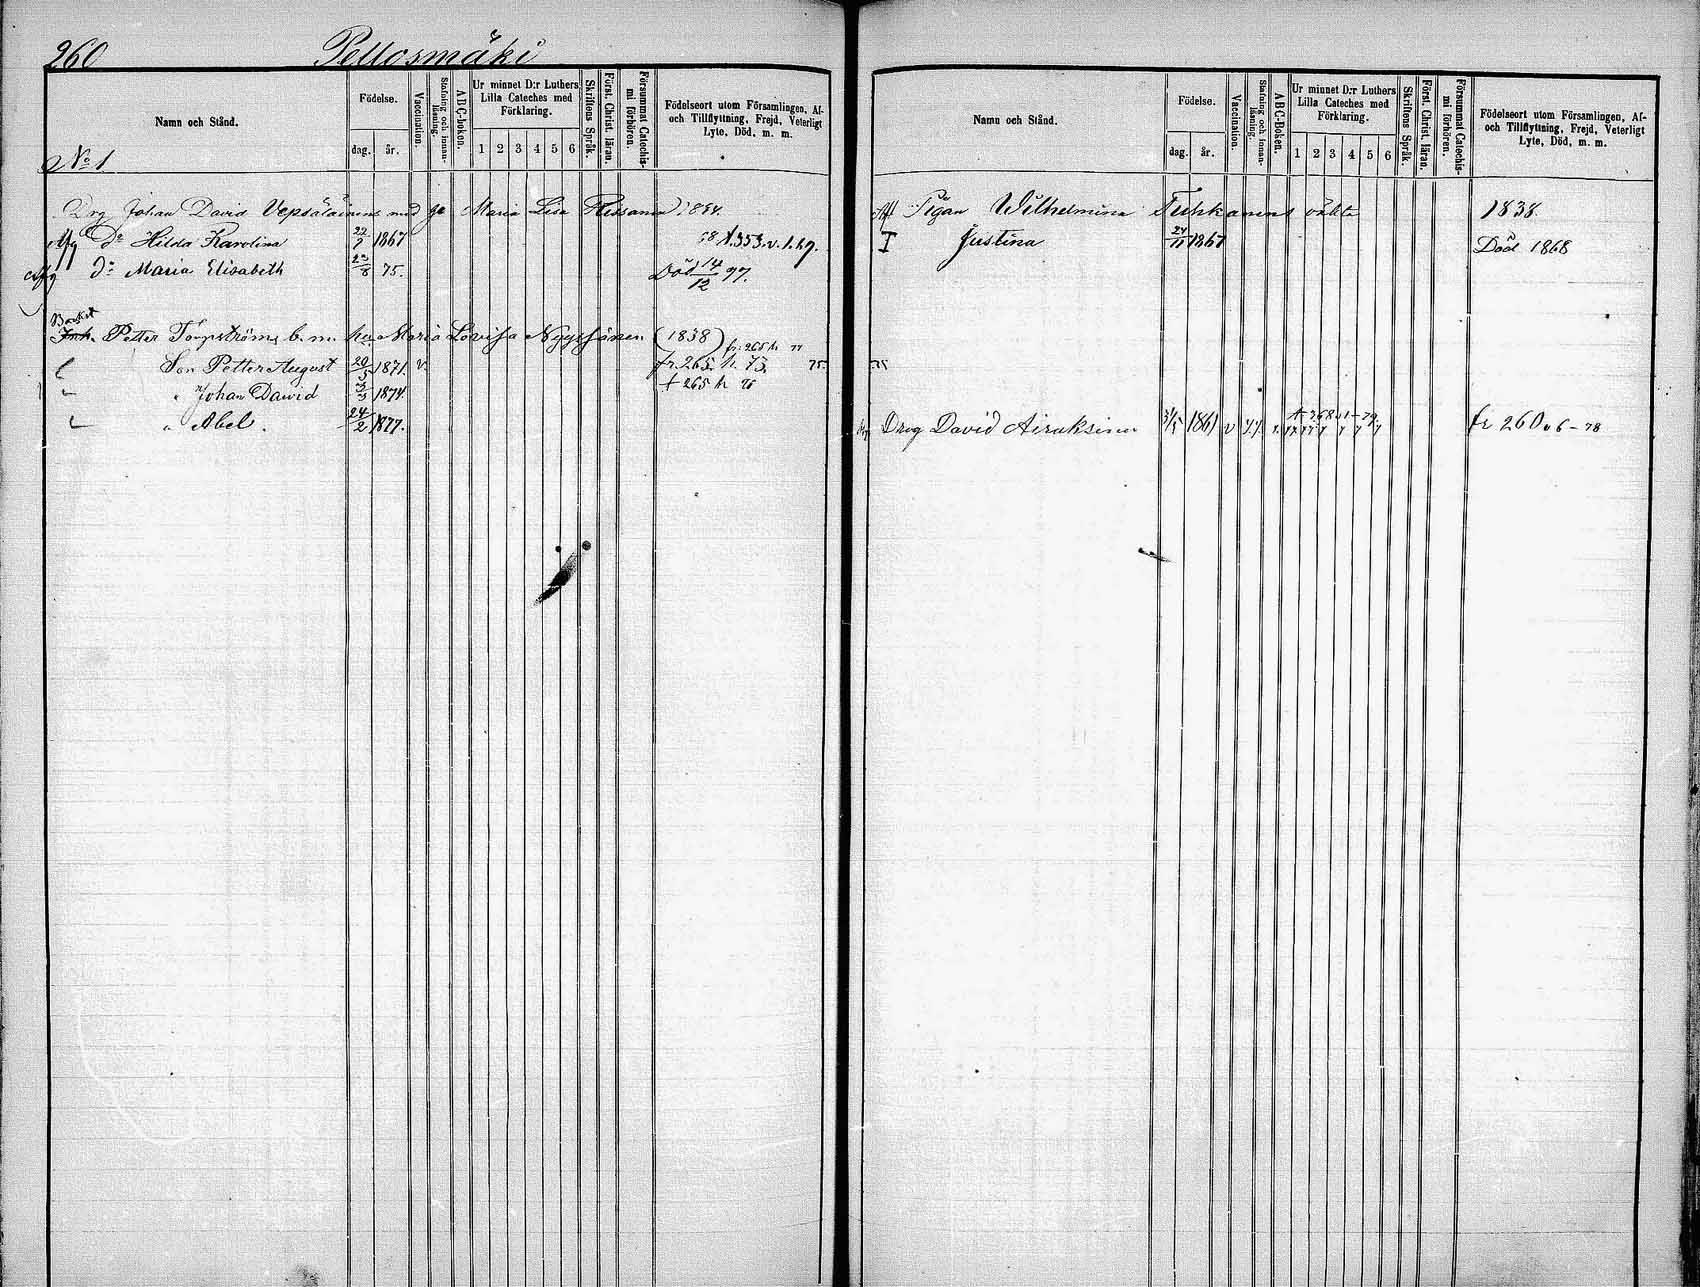 260 Pellosmäki
Namn och Stånd.
Födelse.
dag. år.
Vaccination.
Stafning och innanläsning.
ABC-boken.
Ur minnet D:r Luthers Lilla Cateches med Förklaring.
1 2 3 4 5 6
Skriftens Språk.
Först. Christ. läran.
Försummat Catechismi förhören.
Födelseort utom Församlingen, Af- och Tillflyttning, Frejd, Veterligt Lyte, Död, m. m.
No 1
Drg Johan David Vepsäläinens med Maria Lisa Hissanen 1844.
Do Hilda Karolina 1867 68 t. 353. v. 1. hg.
Do Maria Elisabeth 23/8 75. Död 14/12 77.
Inh. Petter Torpströms b. m. hu Maria Lovisa Nyyssönen (1838) fr. 265 h 77
Son Petter August 20/5 1871. v. fr. 265. h. 73. 75.
" Johan David 3/3 1874. + 265 h 76
" Abel. 24/2 1877.
Namn och Stånd.
Födelse.
dag. år.
Vaccination.
Stafning och innanläsning.
ABC-Boken.
Ur minnet D:r Luthers Lilla Cateches med Förklaring.
1 2 3 4 5 6
Skriftens Språk.
Först. Christ. läran.
Försummat Catechismi förhören.
Födelseort utom Församlingen, Af- och Tillflyttning, Frejd, Veterligt Lyte, Död, m. m.
Pigan Wilhelmina Tishkanens oäkta 1838.
I Justina 24/11 1867 Död 1868
75
Dreg David Airaksinen 1861 v fr 260 v 6-78